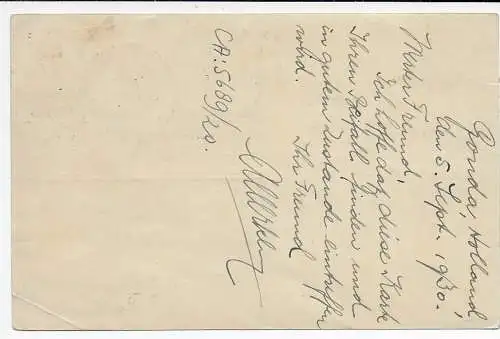 Gouda, Holland
den 5. Sept. 1930.
Mein Freund,
Ich hoffe daz diese Karte
Ihren Beifall finden und
in gutem Zustande eintreffen
wird.
Ihr Freund
CA:5689/20.